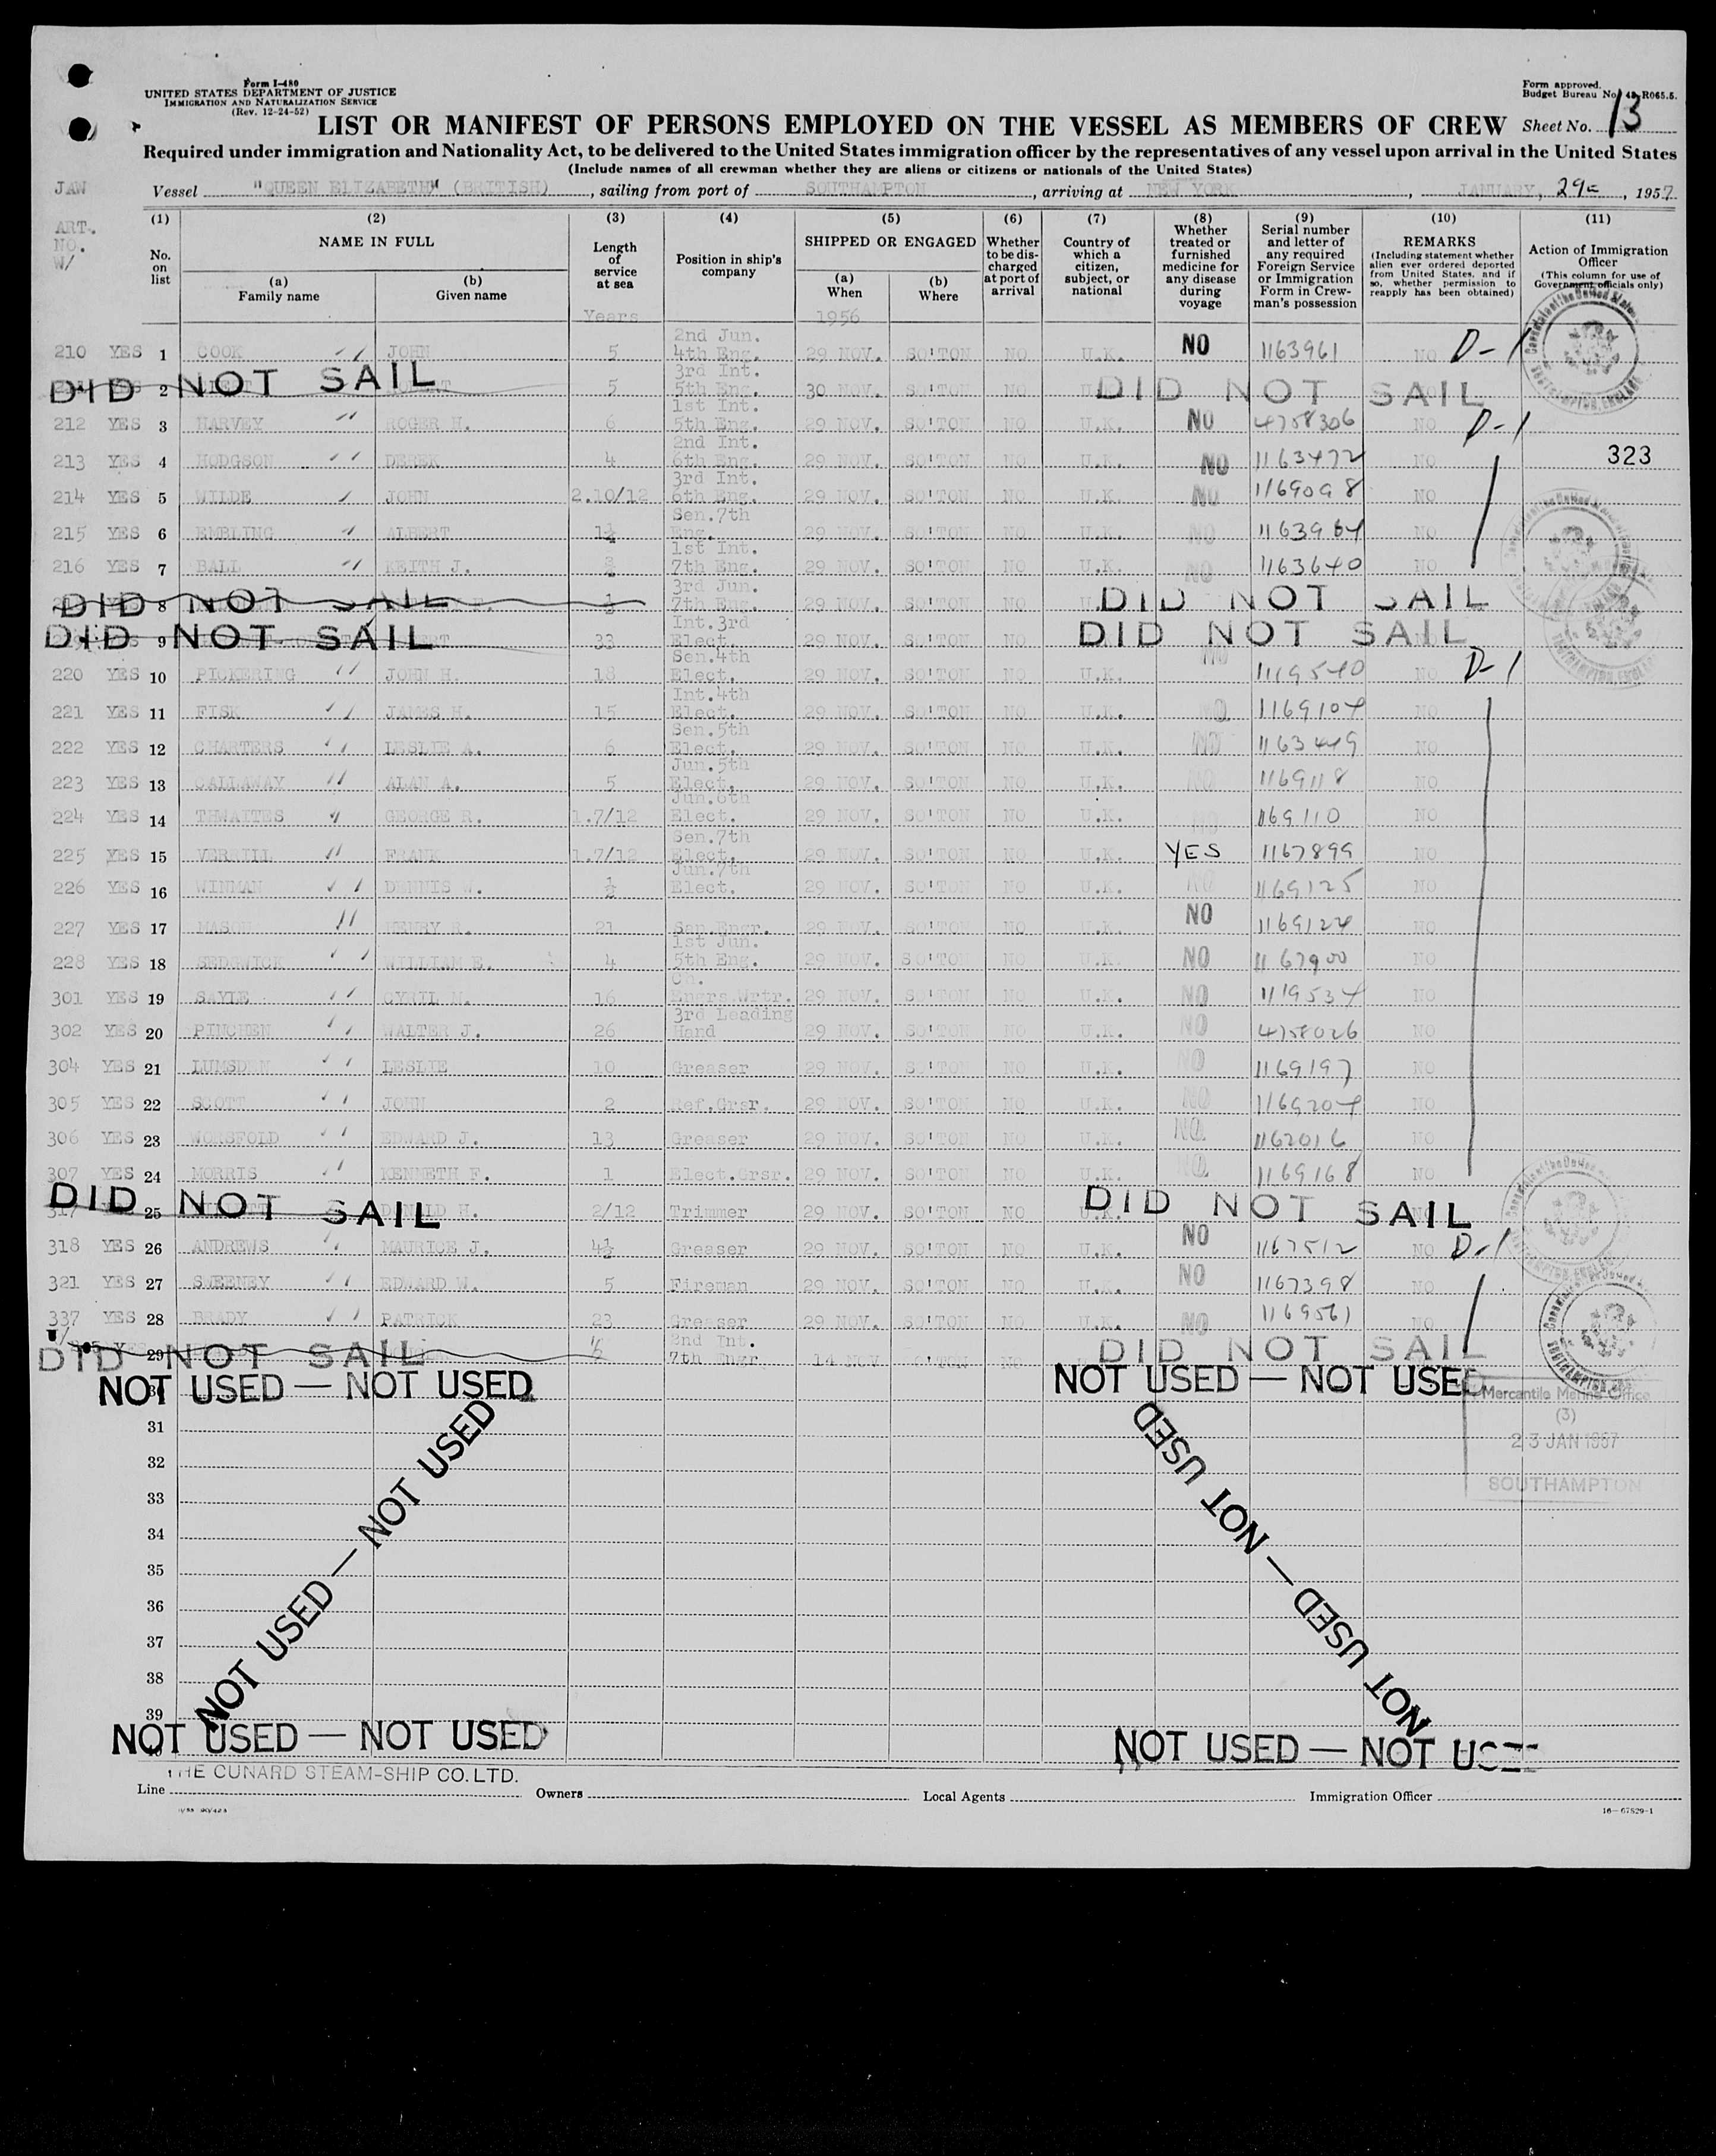 Form I-480
UNITED STATES DEPARTMENT OF JUSTICE
IMMIGRATION AND NATURALIZATION SERVICE
(Rev. 12-24-52)
Form approved.
Budget Bureau No. 43-R065.5.
LIST OR MANIFEST OF PERSONS EMPLOYED ON THE VESSEL AS MEMBERS OF CREW Sheet No. 13
Required under immigration and Nationality Act, to be delivered to the United States immigration officer by the representatives of any vessel upon arrival in the United States
(Include names of all crewman whether they are aliens or citizens or nationals of the United States)
JAN Vessel "QUEEN ELIZABETH" (BRITISH), sailing from port of SOUTHAMPTON, arriving at NEW YORK, JANUARY, 29, 1957
ART. NO. W/
(1) No. on list
(2) NAME IN FULL (a) Family name (b) Given name
(3) Length of service at sea Years
(4) Position in ship's company
(5) SHIPPED OR ENGAGED (a) When 1956 (b) Where
(6) Whether to be discharged at port of arrival
(7) Country of which a citizen, subject, or national
(8) Whether treated or furnished medicine for any disease during voyage
(9) Serial number and letter of any required Foreign Service or Immigration Form in Crewman's possession
(10) REMARKS (Including statement whether alien ever ordered deported from United States, and if so, whether permission to reapply has been obtained)
(11) Action of Immigration Officer (This column for use of Government officials only)
210 YES 1 COOK JOHN 5 2nd Jun. 4th Eng. 29 NOV. SO'TON NO U.K. NO 1163961 NO D-1
DID NOT SAIL 2 5 3rd Int. 5th Eng. 30 NOV. SO'TON NO DID NOT SAIL
212 YES 3 HARVEY ROGER H. 6 1st Int. 5th Eng. 29 NOV. SO'TON NO U.K. NO 4758306 NO D-1
213 YES 4 HODGSON DEREK 4 2nd Int. 6th Eng. 29 NOV. SO'TON NO U.K. NO 1163472 NO 323
214 YES 5 WILDE JOHN 2.10/12 3rd Int. 6th Eng. 29 NOV. SO'TON NO U.K. NO 1169098 NO
215 YES 6 EMBLING ALBERT 1½ Sen.7th Eng. 29 NOV. SO'TON NO U.K. NO 1163964 NO
216 YES 7 BALL KEITH J. 1st Int. 7th Eng. 29 NOV. SO'TON NO U.K. NO 1163640 NO
DID NOT SAIL 8 ½ 3rd Jun. 7th Eng. 29 NOV. SO'TON NO DID NOT SAIL
DID NOT SAIL 9 33 Int.3rd Elect. 29 NOV. SO'TON NO DID NOT SAIL
220 YES 10 PICKERING JOHN H. 18 Sen.4th Elect. 29 NOV. SO'TON NO U.K. NO 1119540 NO D-1
221 YES 11 FISK JAMES H. 15 Int.4th Elect. 29 NOV. SO'TON NO U.K. NO 1169104 NO
222 YES 12 CHARTERS LESLIE A. 6 Sen.5th Elect. 29 NOV. SO'TON NO U.K. NO 1163449 NO
223 YES 13 CALLAWAY ALAN A. 5 Jun.5th Elect. 29 NOV. SO'TON NO U.K. NO 1169118 NO
224 YES 14 THWAITES GEORGE R. 1.7/12 Jun.6th Elect. 29 NOV. SO'TON NO U.K. NO 1169110 NO
225 YES 15 VERRILL FRANK 1.7/12 Sen.7th Elect. 29 NOV. SO'TON NO U.K. YES 1167899 NO
226 YES 16 WINMAN DENNIS W. ½ Jun.7th Elect. 29 NOV. SO'TON NO U.K. NO 1169125 NO
227 YES 17 MASON HENRY R. 21 San.Engr. 29 NOV. SO'TON NO U.K. NO 1169124 NO
228 YES 18 SEDGWICK WILLIAM E. 4 1st Jun. 5th Eng. 29 NOV. SO'TON NO U.K. NO 1167900 NO
301 YES 19 SAYLE CYRIL M. 16 Ch. Engrs.Wrtr. 29 NOV. SO'TON NO U.K. NO 1119534 NO
302 YES 20 PINCHEN WALTER J. 26 3rd Leading Hand 29 NOV. SO'TON NO U.K. NO 4758026 NO
304 YES 21 LUMSDEN LESLIE 10 Greaser 29 NOV. SO'TON NO U.K. NO 1169197 NO
305 YES 22 SCOTT JOHN 2 Ref.Grsr. 29 NOV. SO'TON NO U.K. NO 1169204 NO
306 YES 23 WORSFOLD EDWARD J. 13 Greaser 29 NOV. SO'TON NO U.K. NO 1162016 NO
307 YES 24 MORRIS KENNETH F. 1 Elect.Grsr. 29 NOV. SO'TON NO U.K. NO 1169168 NO
DID NOT SAIL 25 DONALD H. 2/12 Trimmer 29 NOV. SO'TON NO U.K. DID NOT SAIL
318 YES 26 ANDREWS MAURICE J. 4½ Greaser 29 NOV. SO'TON NO U.K. NO 1167512 NO D-1
321 YES 27 SWEENEY EDWARD W. 5 Fireman 29 NOV. SO'TON NO U.K. NO 1167398 NO
337 YES 28 BRADY PATRICK 23 Greaser 29 NOV. SO'TON NO U.K. NO 1169561 NO
DID NOT SAIL 29 2nd Int. 7th Engr NO DID NOT SAIL
NOT USED — NOT USED NOT USED — NOT USED
Mercantile Marine Office
(3)
23 JAN 1957
SOUTHAMPTON
31
32
33
34
35
36
37
38
39
NOT USED — NOT USED
NOT USED — NOT USED
NOT USED — NOT USED NOT USED — NOT USED
THE CUNARD STEAM-SHIP CO. LTD.
Line Owners Local Agents Immigration Officer
16—67529-1